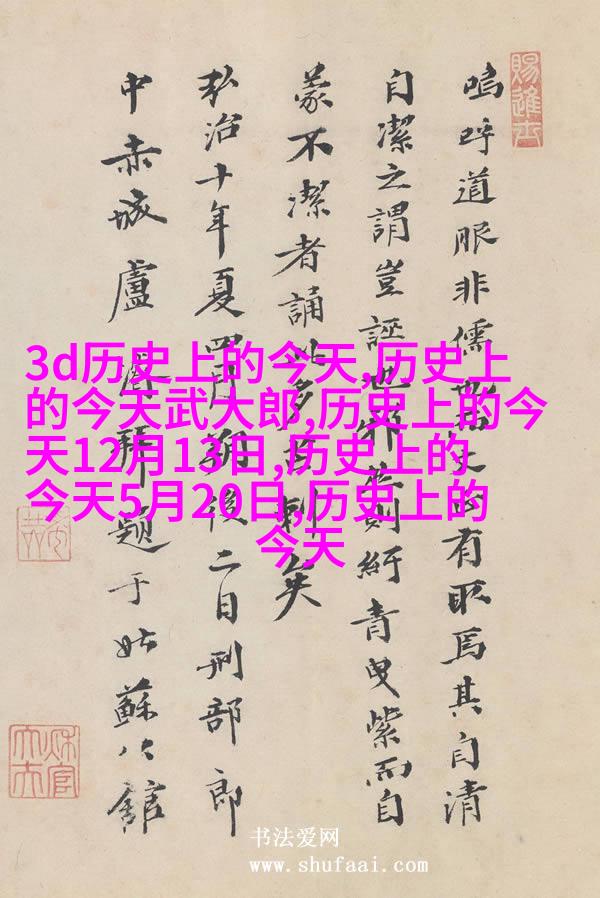 賜進士
嗚呼道眼非儒也有取焉其自清
自潔之謂豈誣也則紆青曳紫而自
蒙不潔者誦此多刺矣
弘治十年夏四月朔後二日刑部郎
中赤城盧拜題于姑蘇公館
3d历史上的今天,历史上
的今天武大郎,历史上的今
天12月13日,历史上的
今天5月20日,历史上的
今天
书法爱网
www.shufaai.com